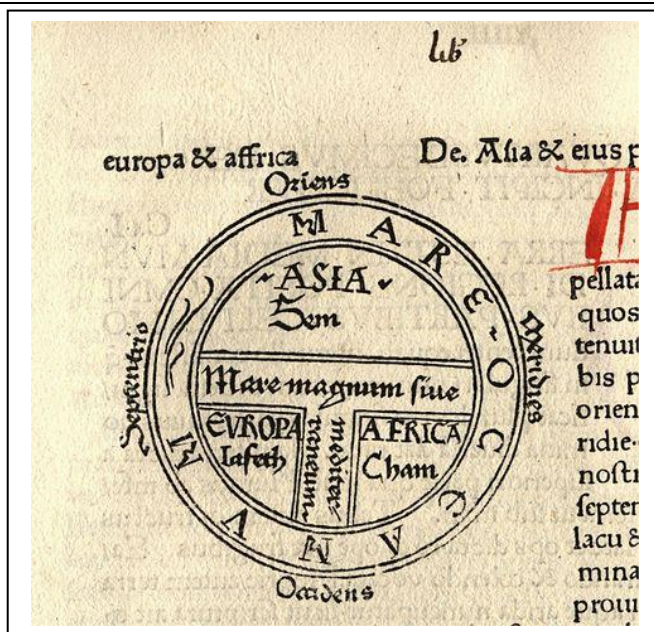 lib
europa & affrica
De. Asia & eius p
Oriens
MARE OCCEANVM
ASIA
Sem
Septentrio
Meridies
Mare magnum siue
mediter
raneum
EVROPA
Iafeth
AFRICA
Cham
Occidens
pellata
quos
tenuit
bis p
orien
ridie
nostr
septen
lacu &
mina
prouin